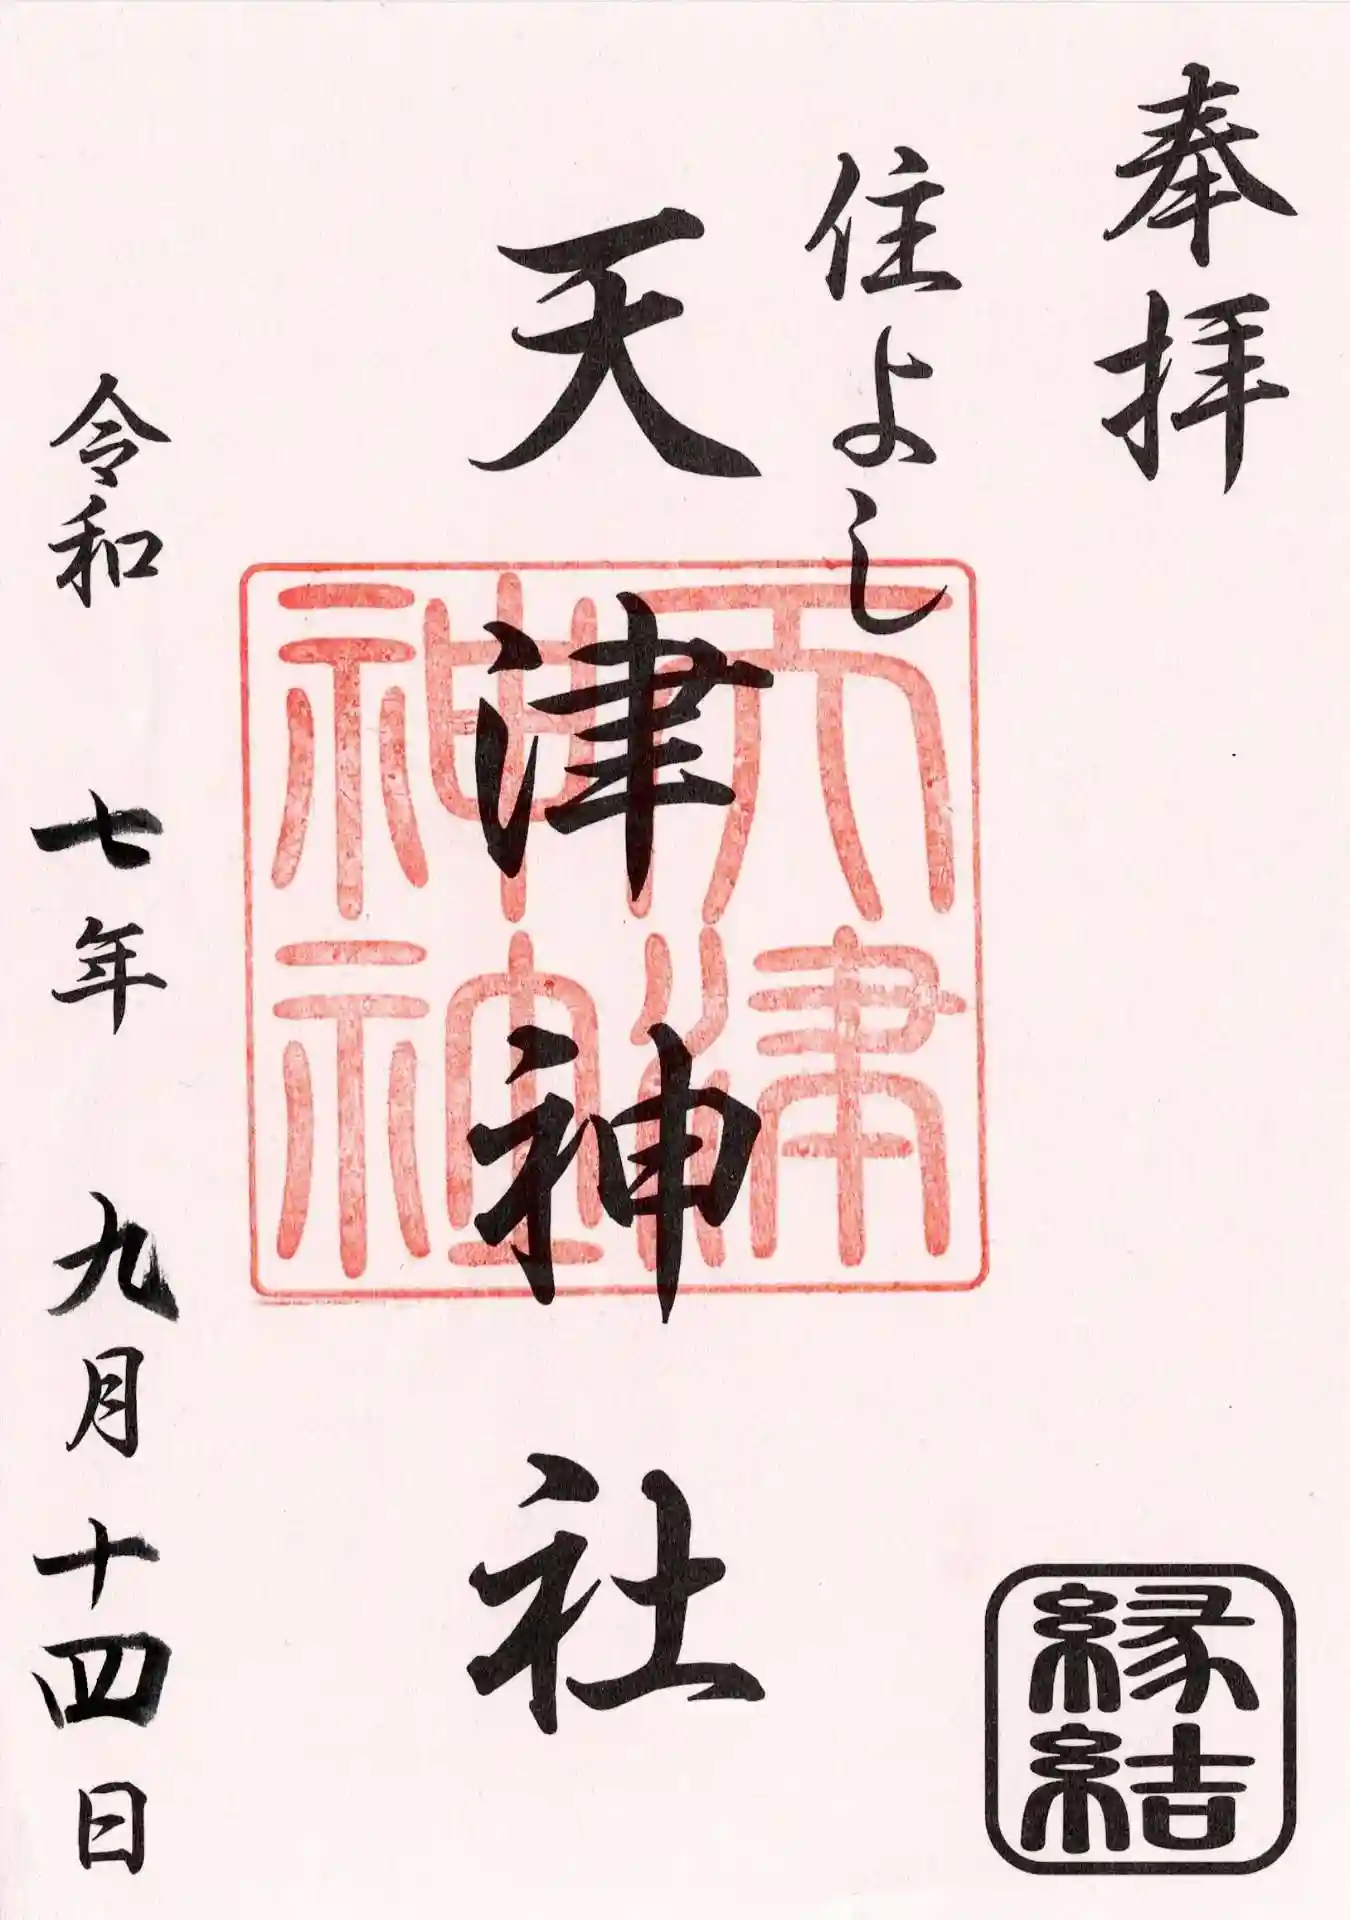 奉拝
縁結
住よし
天津神社
天津神社
令和 七年 九月十四日